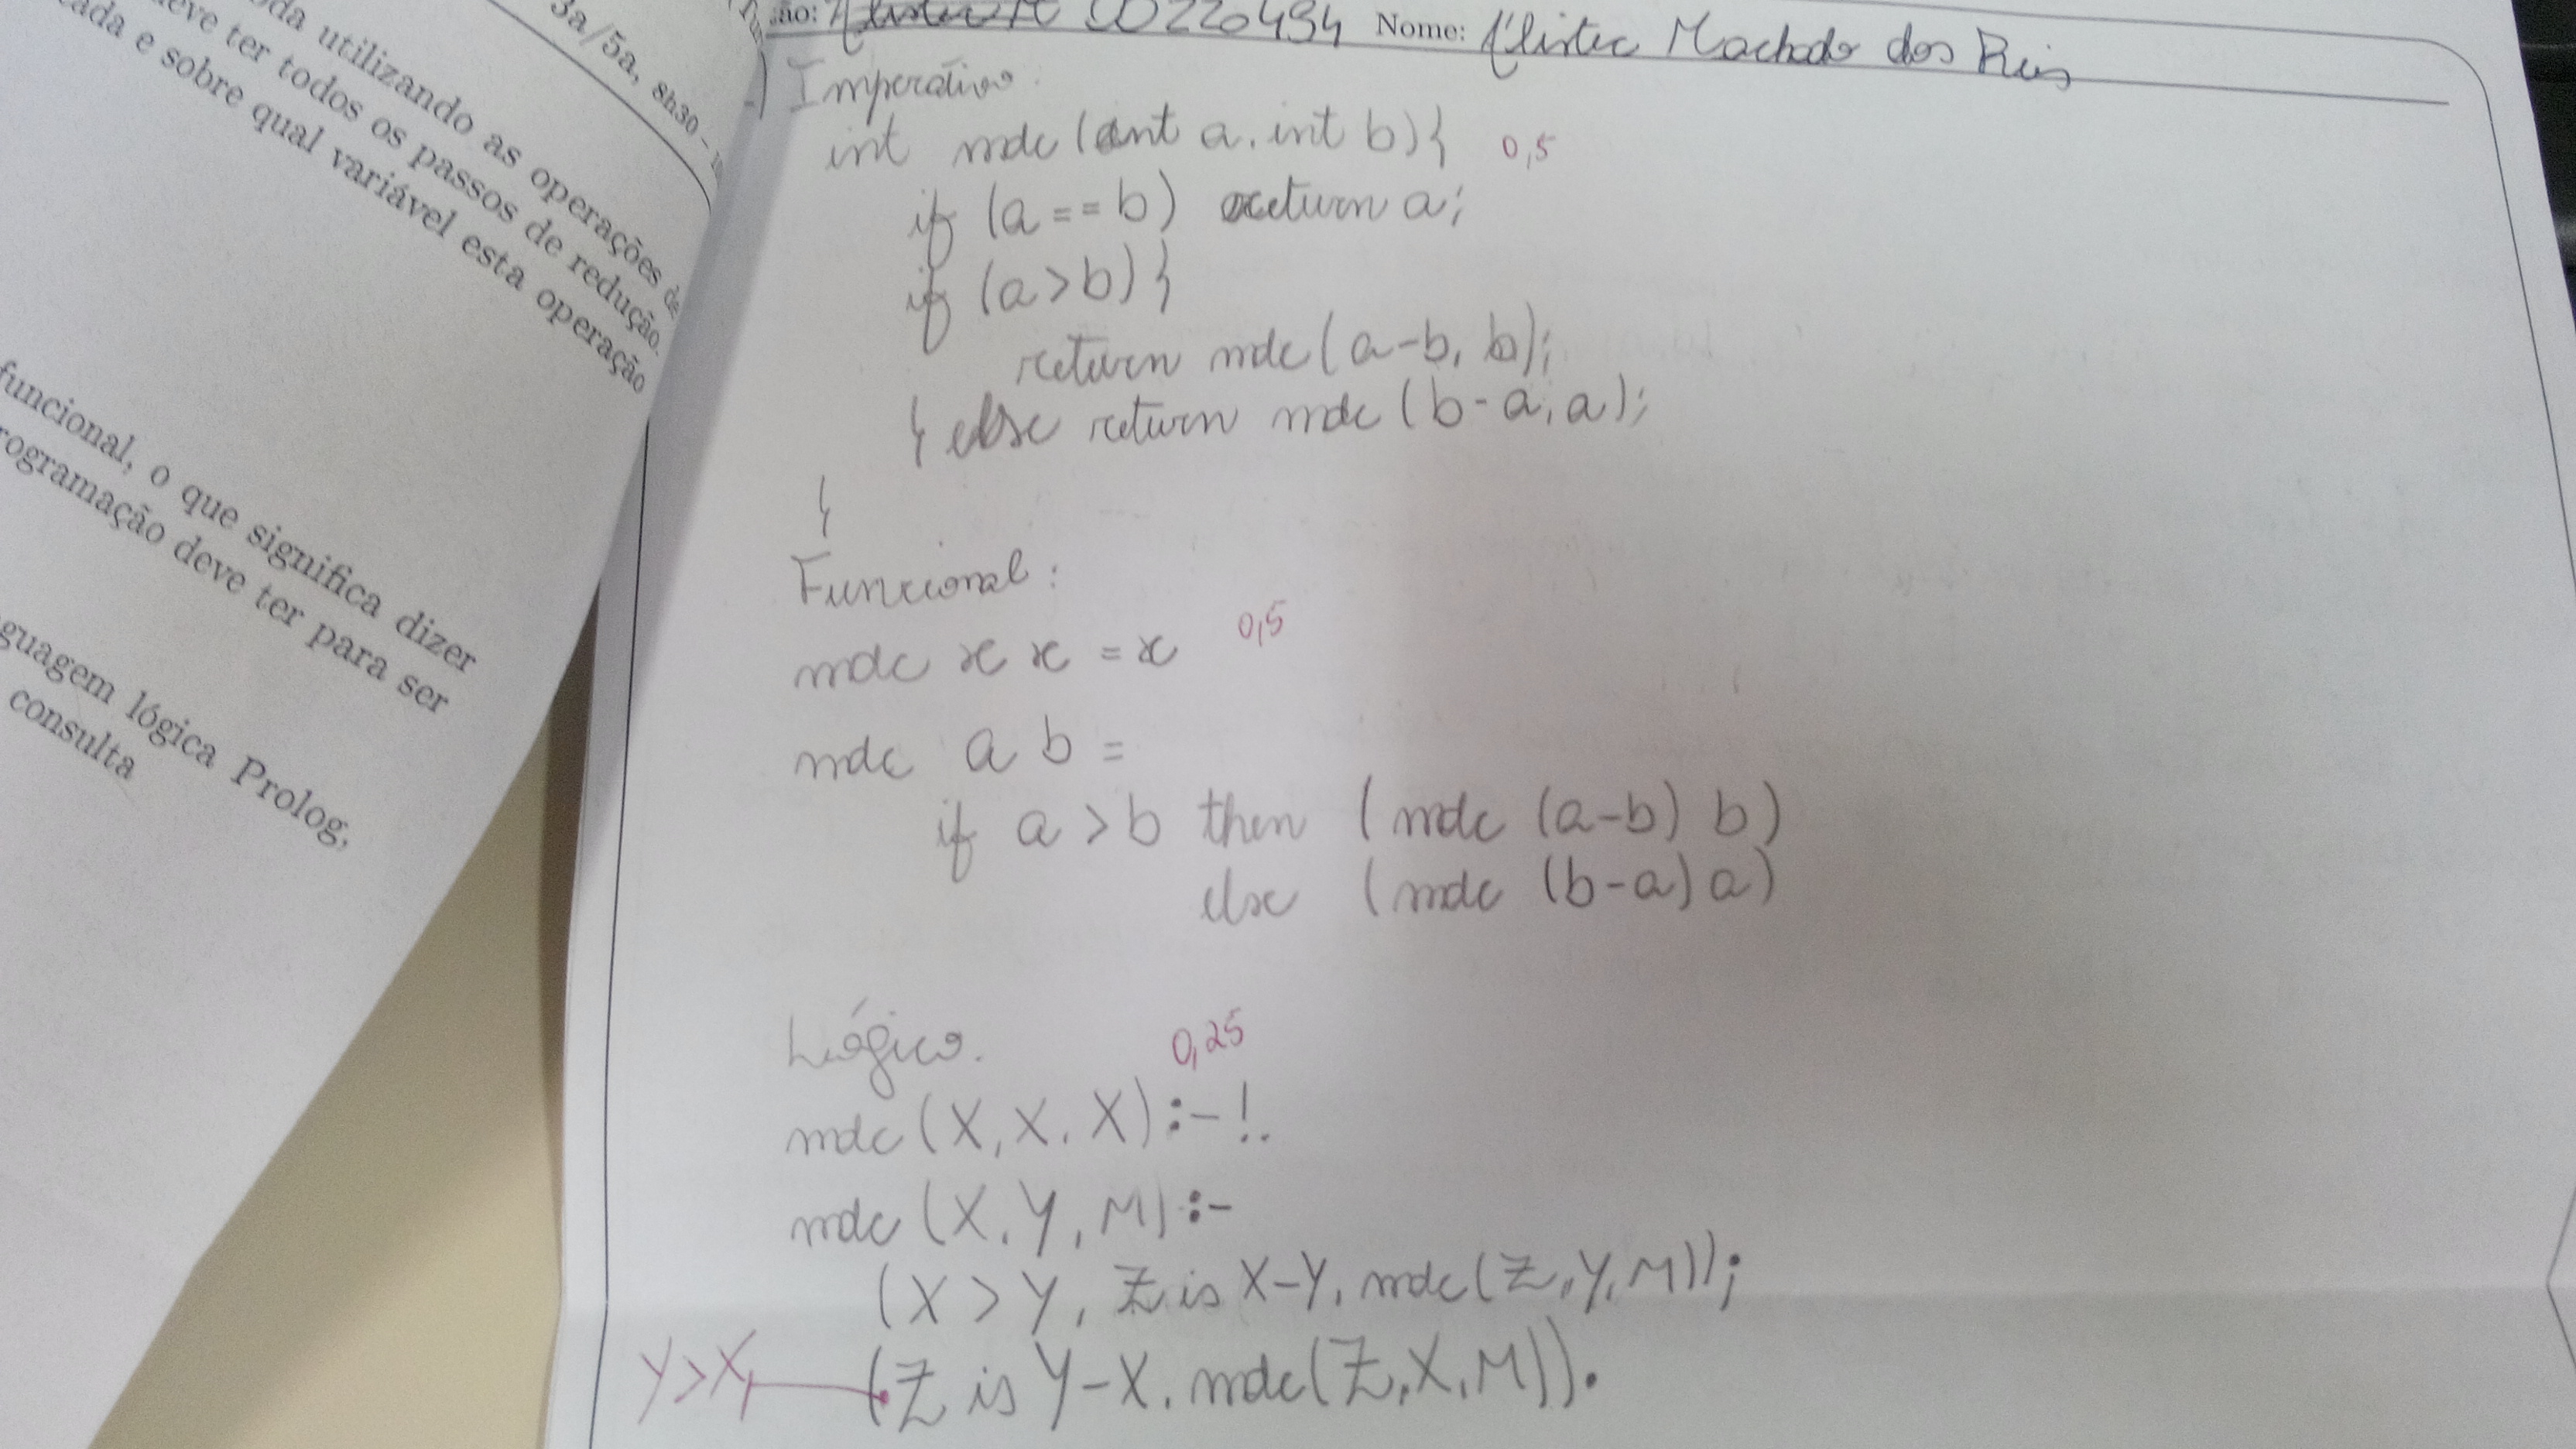 3a/5a, 8h30 –
utilizando as operações de
eve ter todos os passos de redução.
ada e sobre qual variável esta operação
funcional, o que significa dizer
rogramação deve ter para ser
guagem lógica Prolog,
consulta
ão: 00220494 Nome: Alister Machado dos Reis
Imperativo:
int mdc (int a, int b) { 0,5
if (a == b) return a;
if (a > b) {
return mdc (a-b, b);
} else return mdc (b-a, a);
}
Funcional:
mdc x x = x 0,5
mdc a b =
if a > b then (mdc (a-b) b)
else (mdc (b-a) a)
Lógico. 0,25
mdc (X, X, X) :- !.
mdc (X, Y, M) :-
(X > Y, Z is X-Y, mdc (Z, Y, M));
Y>X, (Z is Y-X, mdc (Z, X, M)).